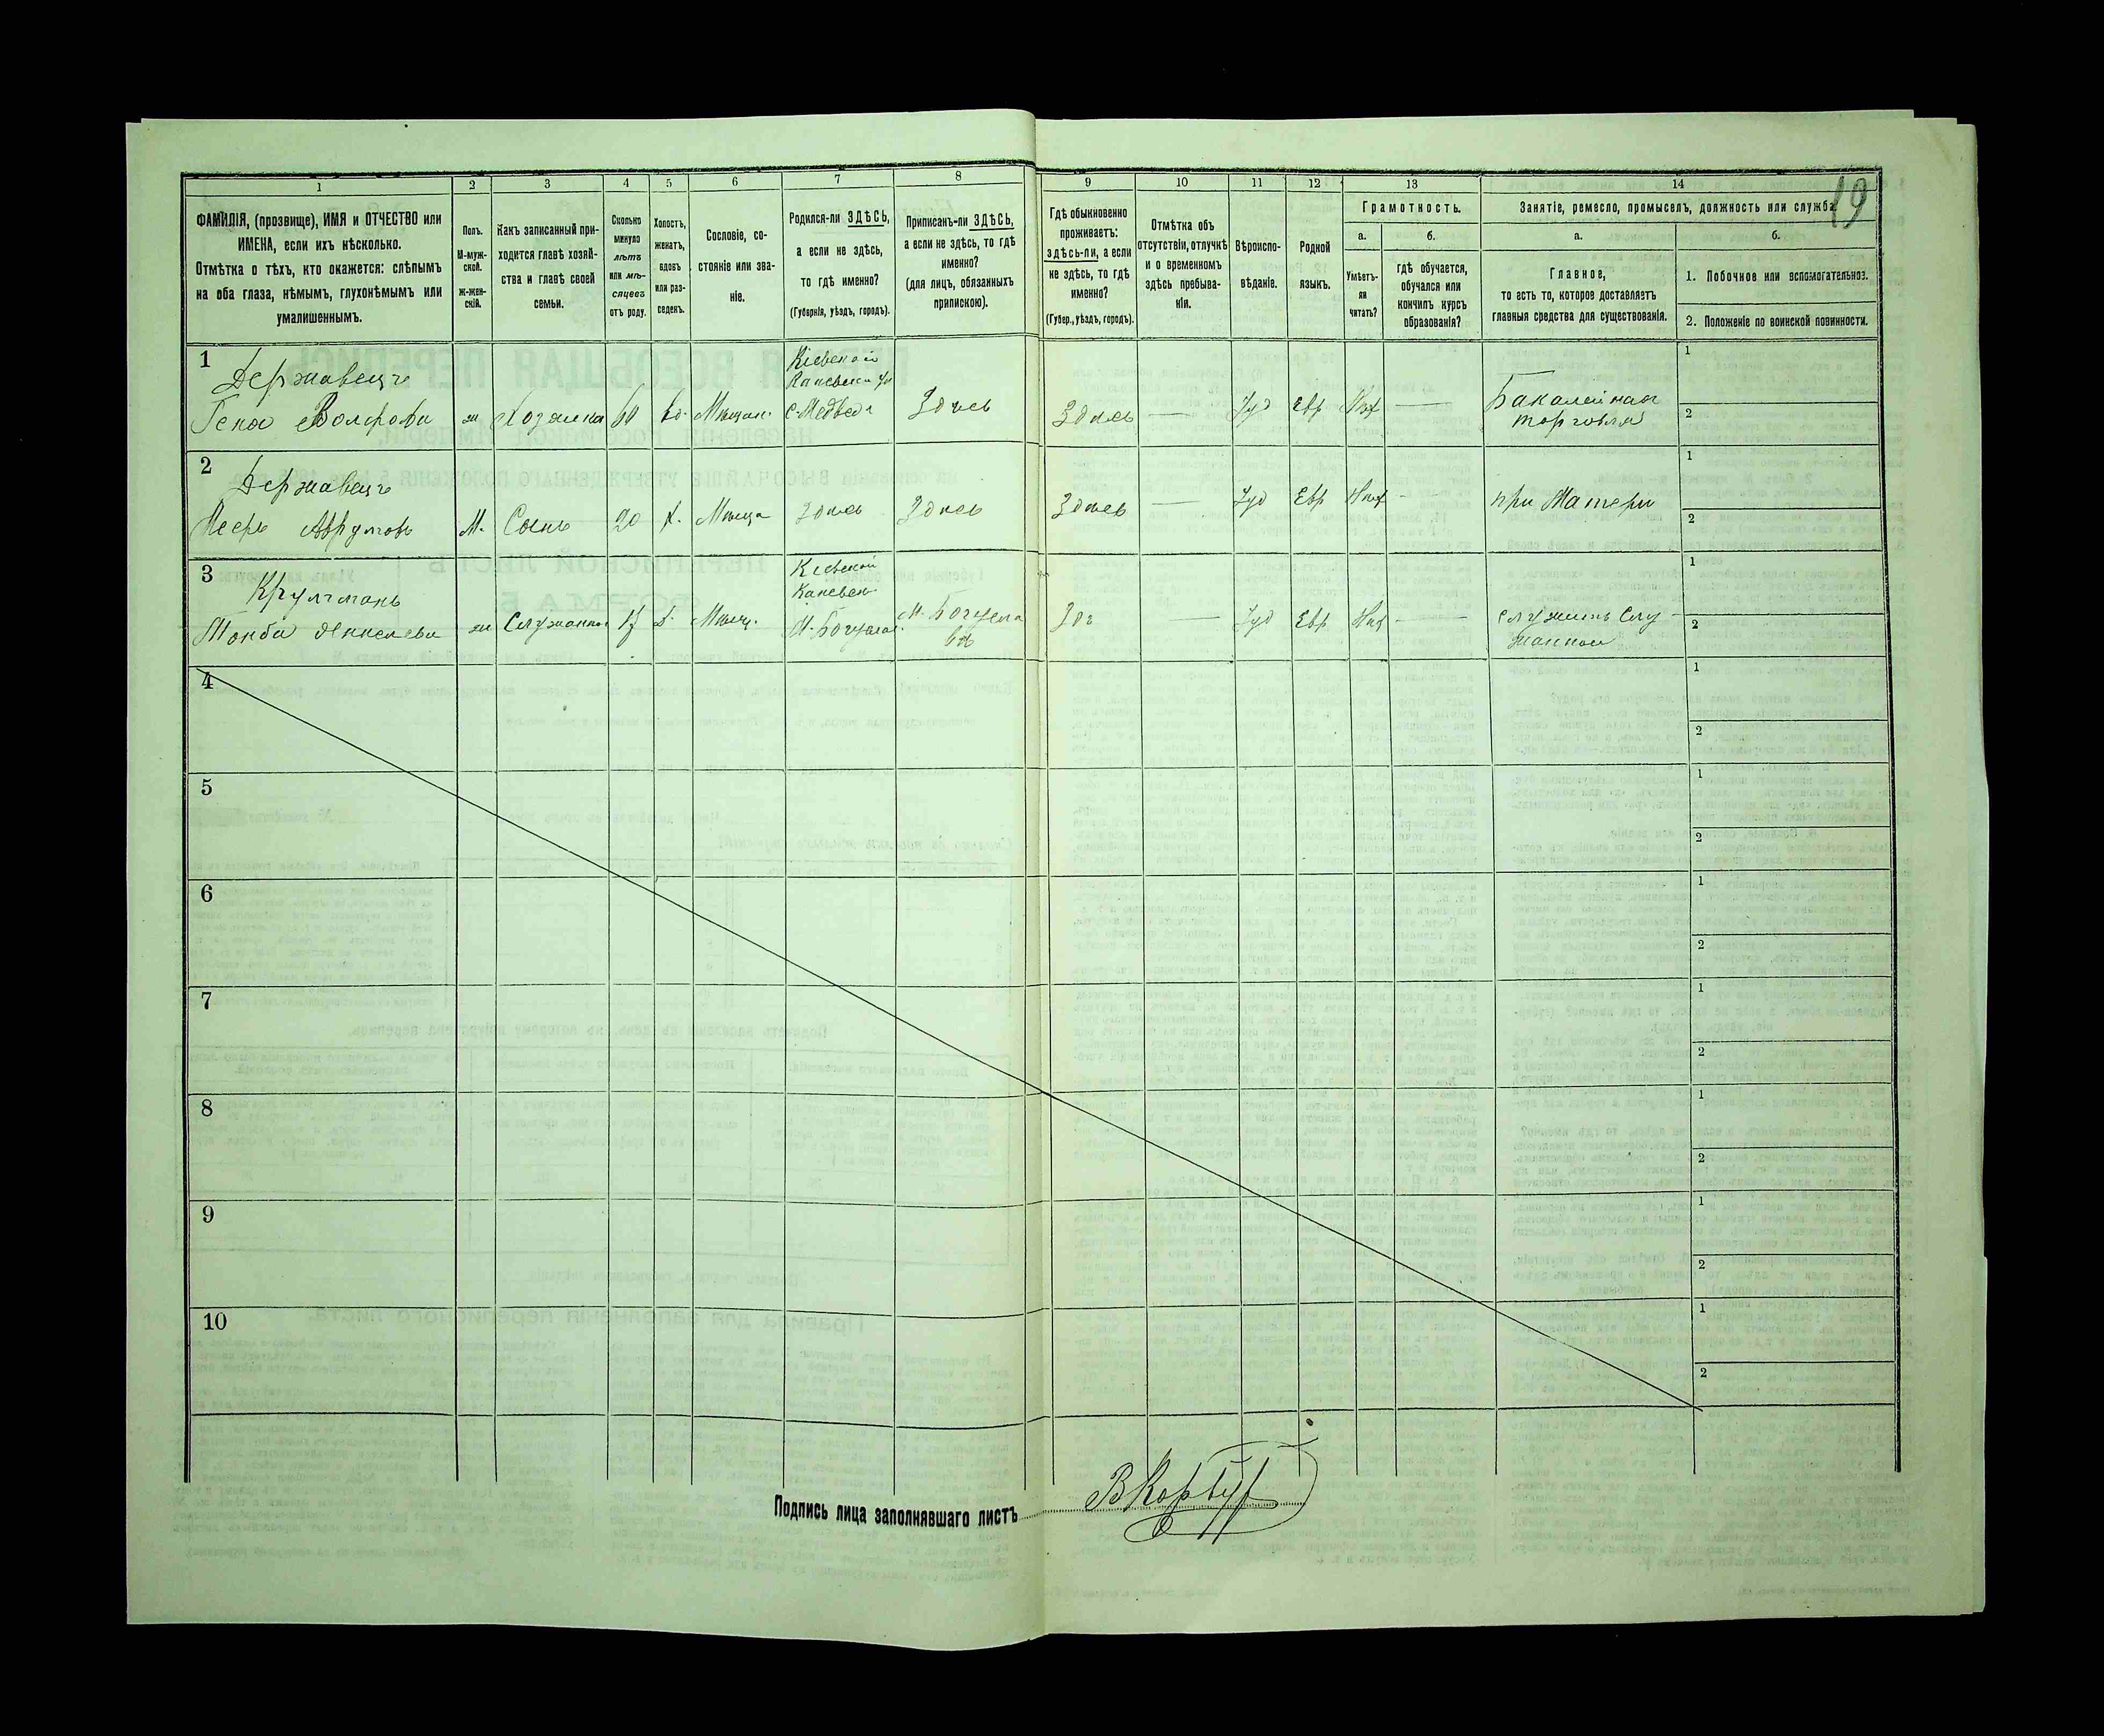 19
1 2 3 4 5 6 7 8 9 10 11 12 13 14
ФАМИЛІЯ, (прозвище), ИМЯ и ОТЧЕСТВО или
ИМЕНА, если ихъ нѣсколько.
Отмѣтка о тѣхъ, кто окажется: слѣпымъ
на оба глаза, нѣмымъ, глухонѣмымъ или
умалишеннымъ.
Полъ.
М-муж-
ской.
Ж-жен-
скій.
Какъ записанный при-
ходится главѣ хозяй-
ства и главѣ своей
семьи.
Сколько
минуло
лѣтъ
или мѣ-
сяцевъ
отъ роду.
Холостъ,
женатъ,
вдовъ
или раз-
веденъ.
Сословіе, со-
стояніе или зва-
ніе.
Родился-ли ЗДѢСЬ,
а если не здѣсь,
то гдѣ именно?
(Губернія, уѣздъ, городъ).
Приписанъ-ли ЗДѢСЬ,
а если не здѣсь, то гдѣ
именно?
(для лицъ, обязанныхъ
припискою).
Гдѣ обыкновенно
проживаетъ:
здѣсь-ли, а если
не здѣсь, то гдѣ
именно?
(Губер., уѣздъ, городъ).
Отмѣтка объ
отсутствіи, отлучкѣ
и о временномъ
здѣсь пребыва-
ніи.
Вѣроиспо-
вѣданіе.
Родной
языкъ.
Грамотность.
а.
Умѣетъ-
ли
читать?
б.
гдѣ обучается,
обучался или
кончилъ курсъ
образованія?
Занятіе, ремесло, промыселъ, должность или служба
а.
Главное,
то есть то, которое доставляетъ
главныя средства для существованія.
б.
1. Побочное или вспомогательноз.
2. Положеніе по воинской повинности.
1
Державецъ
Гена Волфова
ж
Хозяйка
60
вд.
Мѣщан.
Кіевской
Каневски уѣ
с. Медвед
Здѣсь
Здѣсь
—
Іуд
Евр
Нѣт
—
Бакалейная
торговля
1
2
2
Державецъ
Мееръ Аврумовъ
М.
Сынъ
20
х.
Мѣща
Здѣсь
Здѣсь
Здѣсь
—
Іуд
Евр
Нѣт
—
при Матери
1
2
3
Кругманъ
Тойба Янкелева
ж
Служанка
17
д.
Мѣщ.
Кіевской
Каневск
М. Богуслав
М. Богусла
вѣ
Зд
—
Іуд
Евр
Нѣт
—
служитъ слу
жанкой
1
2
4
1
2
5
1
2
6
1
2
7
1
2
8
1
2
9
1
2
10
1
2
Подпись лица заполнявшаго листъ